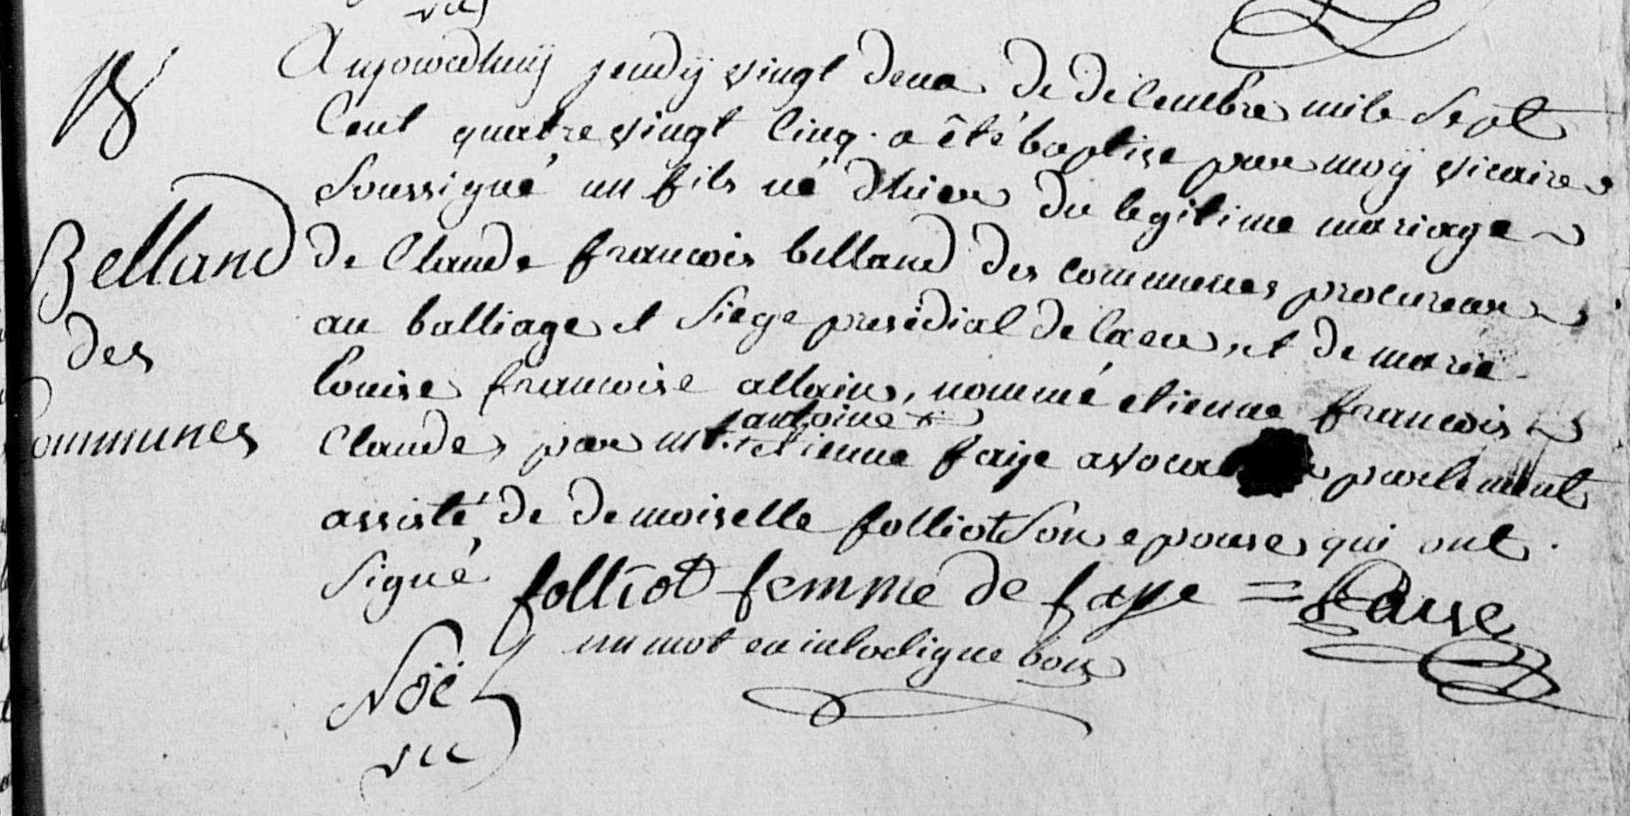 vic
B
Aujourdhuy jeudy vingt deux de decembre mile sept
Cent quatre vingt cinq. a été baptise par moy vicaire
soussigné un fils né d'hier du legitime mariage
Belland des Communes
de Claude françois belland des communes procureur
au balliage et siege presidial de laon, et de marie
louise françoise allain, nommé etienne françois
antoine
Claude, par mt. etienne faye avocat parlement
assisté de demoiselle folliot son epouse qui ont
signé folliot femme de faye = faye
un mot en interligne bon
Noël
vic